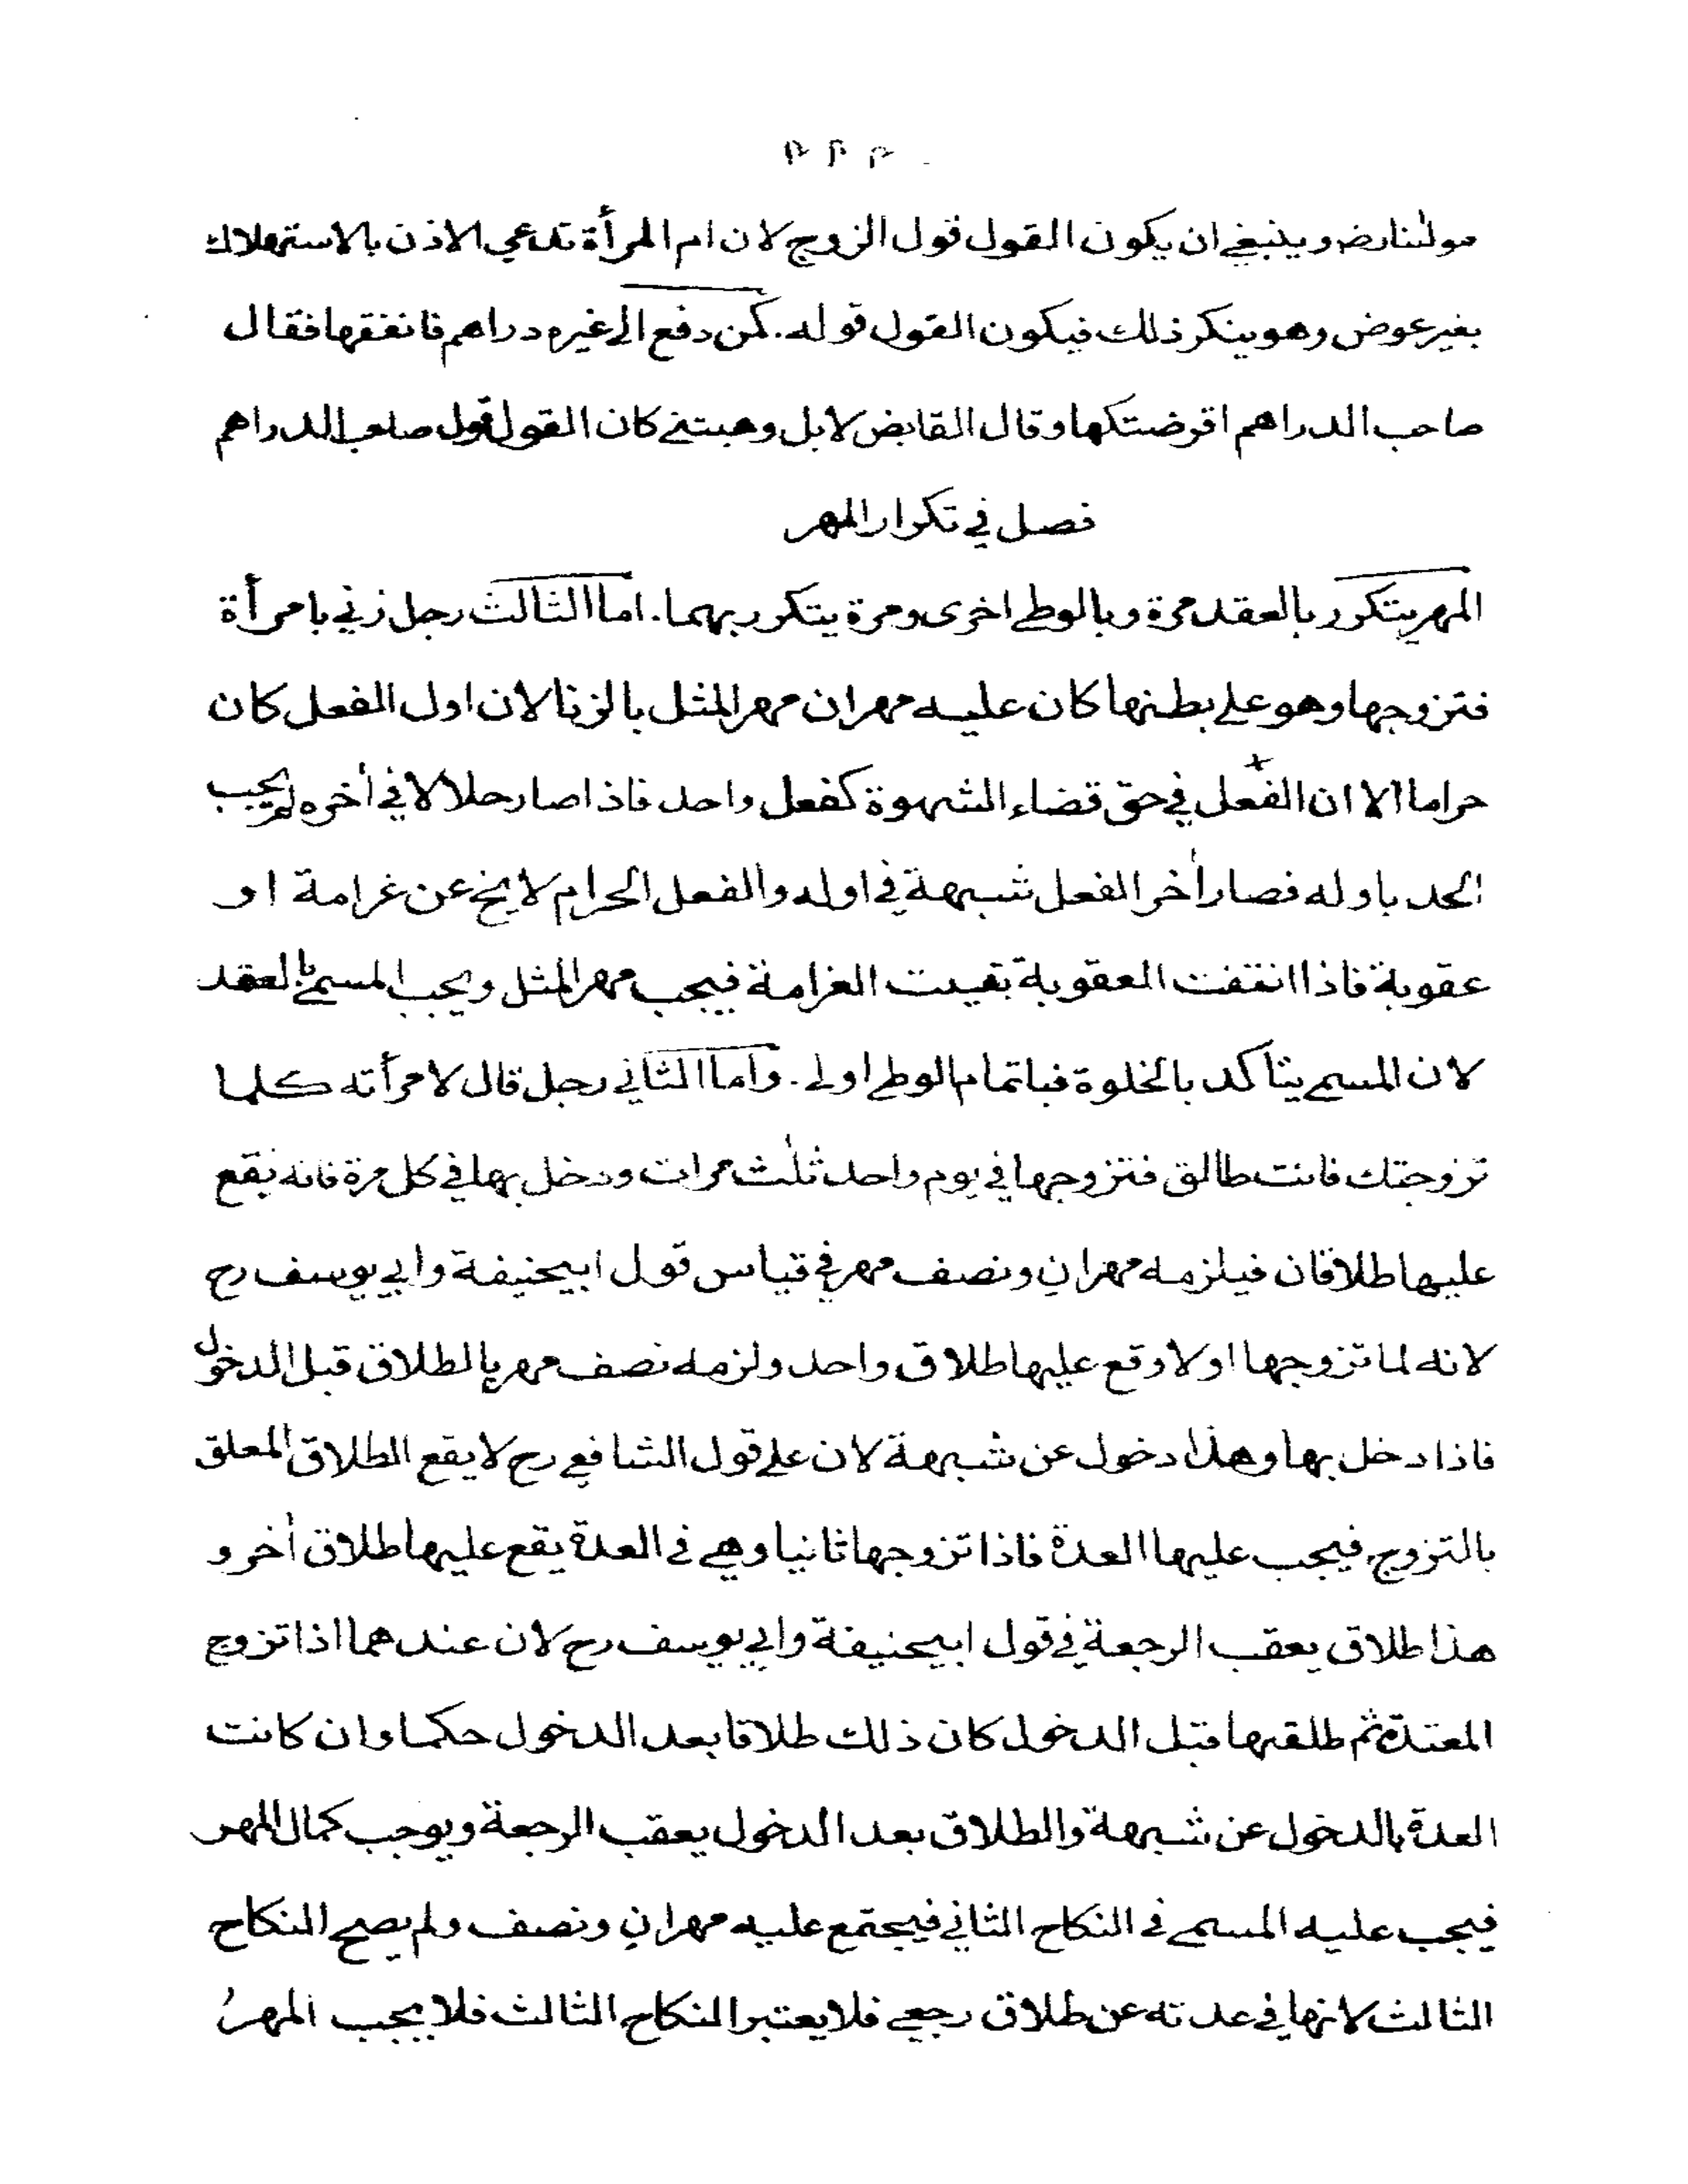 مولٰنا رضـ وينبغي ان يكون القول قول الزوج لان ام المرأة تدعي الاذن بالاستهلاك
بغير عوض وهو ينكر ذلك فيكون القول قوله. كمن دفع الى غيره دراهم فانفقها فقال
صاحب الدراهم اقرضتكها وقال القابض لا بل وهبتني كان القول قول صاحب الدراهم
فصل في تكرار المهر
المهر يتكرر بالعقد مرة وبالوطئ اخرى ومرة يتكرر بهما. اما الثالث رجل زني بامرأة
فتزوجها وهو على بطنها كان عليه مهران مهر المثل بالزنا لان اول الفعل كان
حراما الا ان الفعل في حق قضاء الشهوة كفعل واحد فاذا صار حلالا في أخره لم يجب
الحد باوله فصار أخر الفعل شبهة في اوله والفعل الحرام لا يخ عن غرامة او
عقوبة فاذا انتفت العقوبة بقيت الغرامة فيجب مهر المثل ويجب المسمى بالعقد
لان المسمى يتأكد بالخلوة فباتمام الوطئ اولى. واما الثاني رجل قال لامرأته كلما
تزوجتك فانت طالق فتزوجها في يوم واحد ثلٰث مرات ودخل بها في كل مرة فانه يقع
عليها طلاقان فيلزمه مهران ونصف مهر في قياس قول ابيحنيفة وابي يوسف رح
لانه لما تزوجها اولا وقع عليها طلاق واحد ولزمه نصف مهر بالطلاق قبل الدخول
فاذا دخل بها وهذا دخول عن شبهة لان على قول الشافعي رح لا يقع الطلاق المعلق
بالتزوج فيجب عليها العدة فاذا تزوجها ثانيا وهي في العدة يقع عليها طلاق أخر و
هذا طلاق يعقب الرجعة في قول ابيحنيفة وابي يوسف رح لان عندهما اذا تزوج
المعتدة ثم طلقها قبل الدخول كان ذلك طلاقا بعد الدخول حكما وان كانت
العدة بالدخول عن شبهة والطلاق بعد الدخول يعقب الرجعة ويوجب كمال المهر
فيجب عليه المسمى في النكاح الثاني فيجتمع عليه مهران ونصف ولم يصح النكاح
الثالث لانها في عدته عن طلاق رجعي فلا يعتبر النكاح الثالث فلا يجب المهرُ